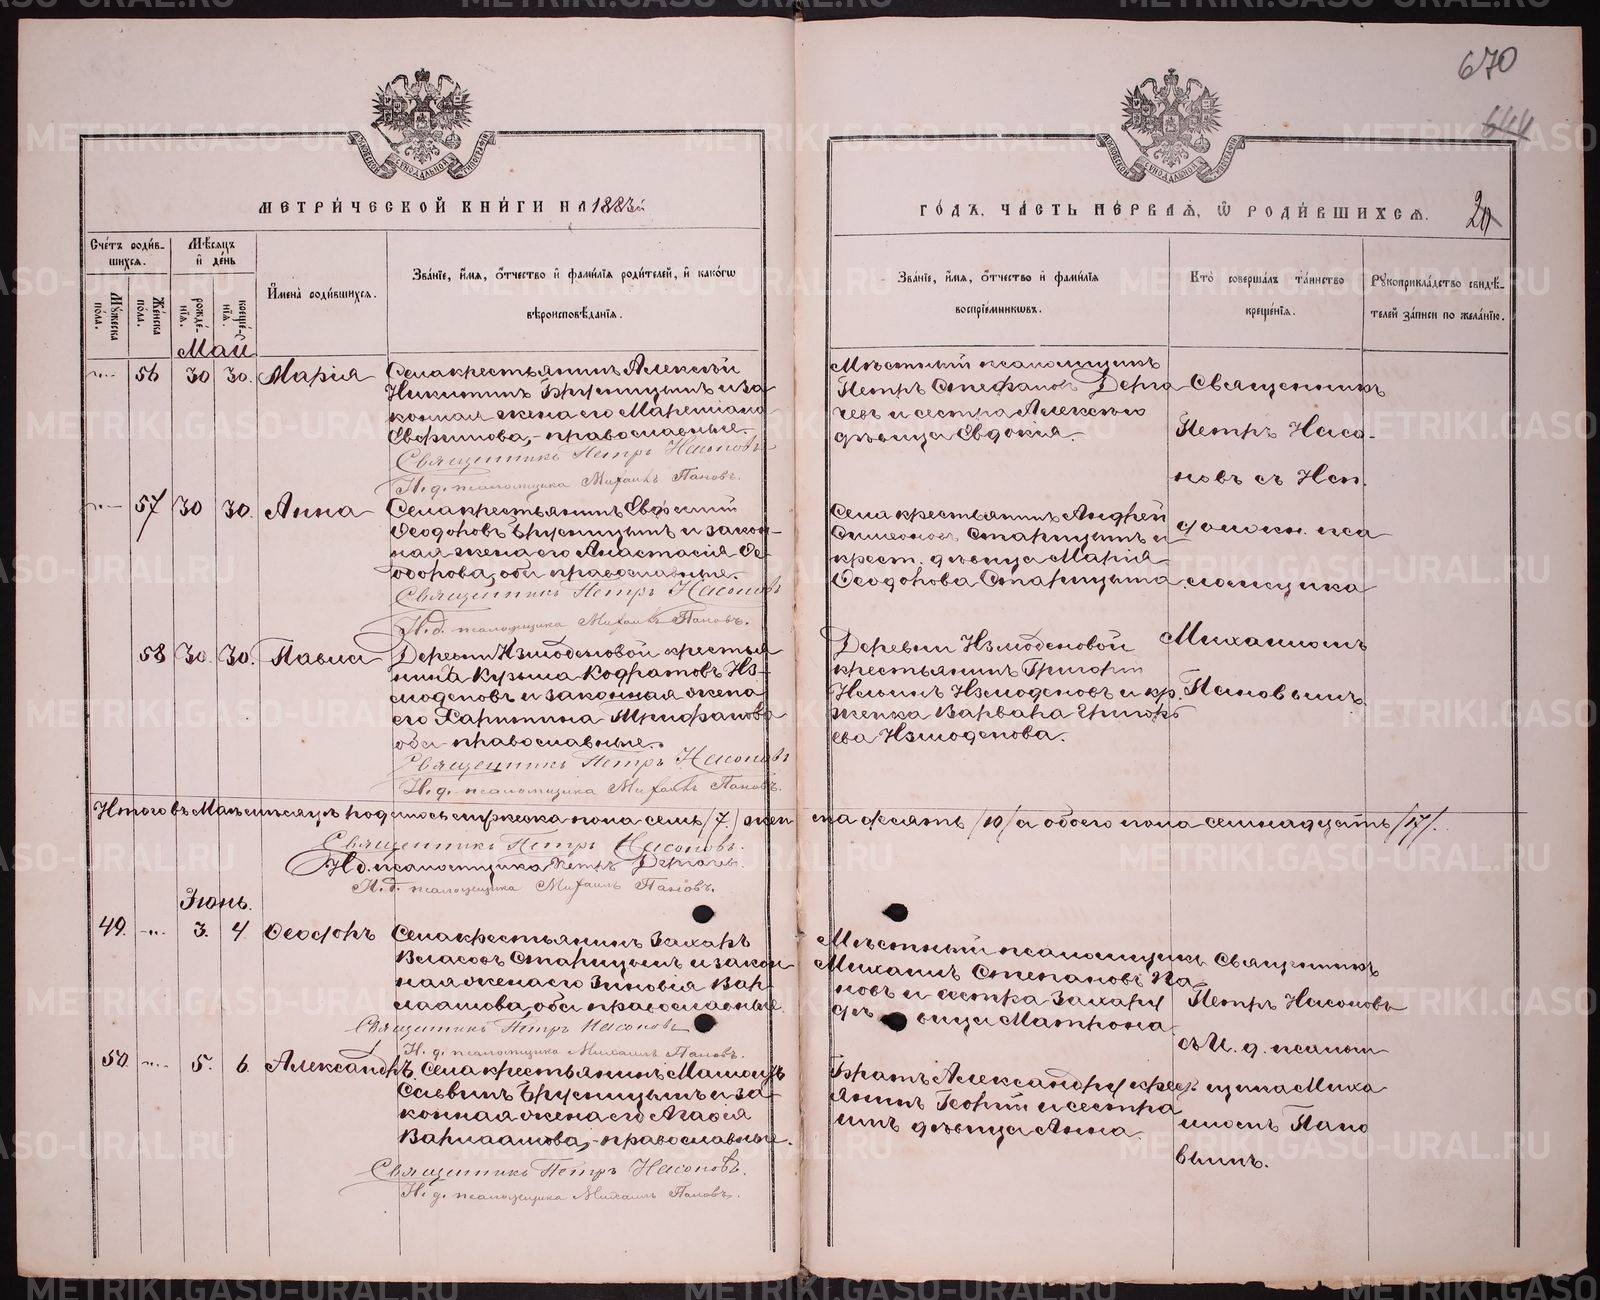 670
644
МЕТРИ́ЧЕСКОЙ КНИ́ГИ НА 1883й
ГО́ДЪ, ЧА́СТЬ ПЕ́РВАЯ, Ѿ РОДИ́ВШИХСЯ.
Сче́тъ роди́в-
шихся.
Мѣ́сяцъ
и҆ де́нь
И҆мена̀ роди́вшихся.
Зва́нїе, и҆́мя, ѻ҆́тчество и҆ фами́лїя роди́телей, и҆ како́гѡ
вѣроисповѣ́данїя.
Зва́нїе, и҆́мя, ѻ҆́тчество и҆ фами́лїя
воспрїе́мниковъ.
Кто̀ соверша́лъ та́инство
креще́нїя.
Рꙋкоприкла́дство свидѣ́-
телей за́писи по жела́нїю.
Мꙋ́жеска
по́ла.
Же́нска
по́ла.
рожде́-
нїя.
креще́-
нїя.
Май
56 30 30. Марія
Села крестьянинъ Алексѣй
Никитинъ Брусницынъ и за
конная жена его
Евфимова, православные.
Священникъ Петръ Насоновъ
И. д. псаломщика Михаилъ Пановъ.
Мѣстный псаломщикъ
Петръ Стефановъ Дерга
чевъ и сестра Алексѣю
дѣвица Евдокія.
Священникъ
Петръ Насо-
новъ съ Исп.
57 30 30. Анна
Села крестьянинъ
Ѳеодоровъ Брусницынъ и закон-
ная жена его Анастасія Ѳе-
одорова, оба православные.
Священникъ Петръ Насоновъ
И. д. псаломщика Михаилъ Пановъ.
Села крестьянинъ Андрей
Симеоновъ Старицынъ и
крест. дѣвица Марія
Ѳеодорова Старицына
должн. пса
ломщика
58 30. 30. Павла
Деревни Измоденовой крестья
нинъ Кузьма Кодратовъ Из-
моденовъ и законная жена
его Харитина Трифанова
оба православные.
Священникъ Петръ Насоновъ
И. д. псаломщика Михаилъ Пановъ.
Деревни Измоденовой
крестьянинъ Григорій
Измоденовъ и кр.
женка Варвара Григорь
ева Измоденова.
Михаиломъ
Пановымъ
Итого въ Маѣ мѣсяцѣ родилось мужеска пола семь /7/ жен
ска десять /10/ а обоего пола семнадцать /17/.
Священникъ Петръ Насоновъ.
И. д. псаломщика Петръ Дергачевъ.
И. д. псаломщика Михаилъ Пановъ.
Іюнь.
49. 3. 4 Ѳеодоръ
Села крестьянинъ Захаръ
Власовъ Старицынъ и закон
ная жена его Зиновія Вар-
лаамова, оба православные.
Священникъ Петръ Насоновъ
И. д. псаломщика Михаилъ Пановъ.
Мѣстный псаломщикъ
Михаилъ Степановъ Па-
новъ и сестра Захару
дѣвица Матрона.
Священникъ
Петръ Насоновъ
съ И. д. псалом
50. 5. 6. Александръ.
Села крестьянинъ
Саввинъ Брусницынъ и за-
конная жена его Агафія
Варлаамова, православные.
Священникъ Петръ Насоновъ.
И. д. псаломщика Михаилъ Пановъ.
Братъ Александру крест
янинъ Георгій и сестра
имъ дѣвица Анна.
щика Миха
иломъ Пано
вымъ.